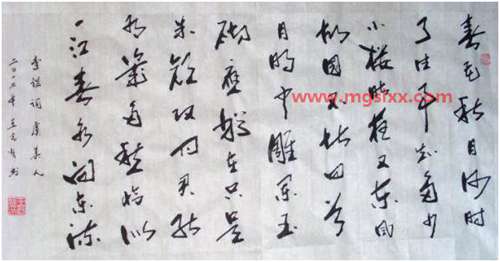 春花秋月何时
了往事知多少
小楼昨夜又东风
故国不堪回首
月明中雕阑玉
砌应犹在只是
朱颜改问君能
有几多愁恰似
一江春水向东流
李煜词虞美人
www.mgsfxx.com